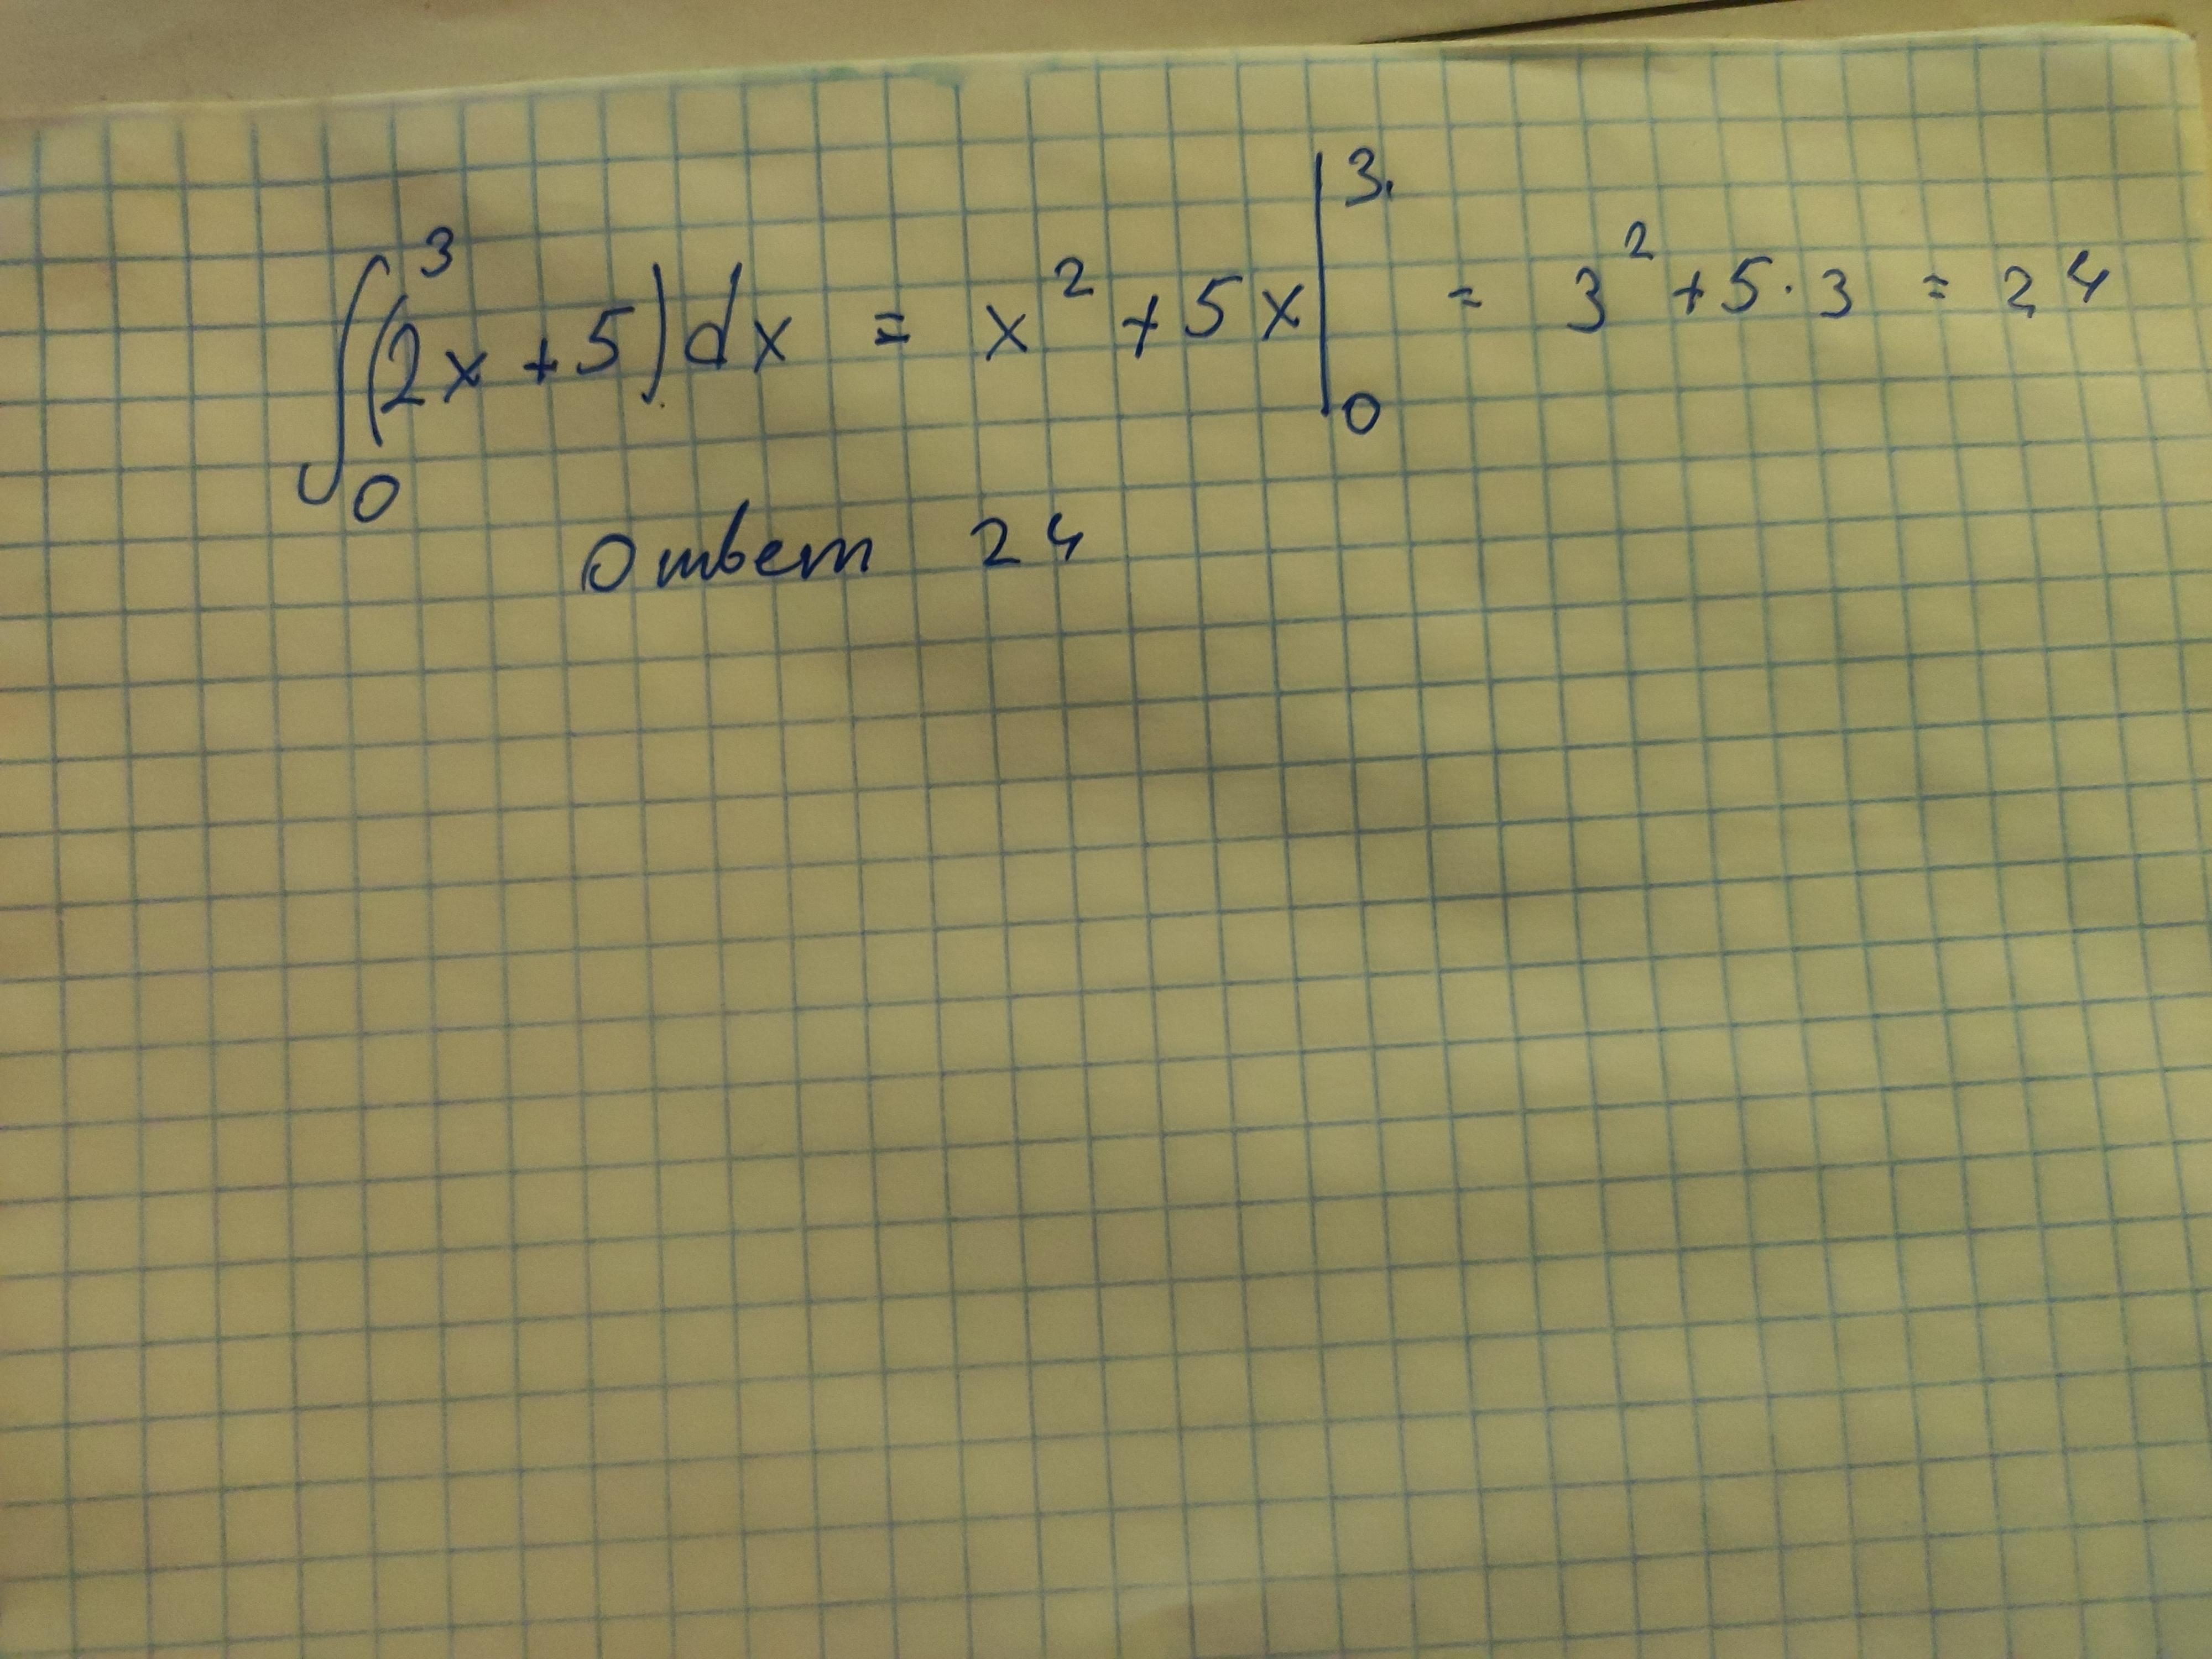 ∫₀³(2x+5)dx = x²+5x|₀³ = 3²+5·3 = 24
Ответ 24